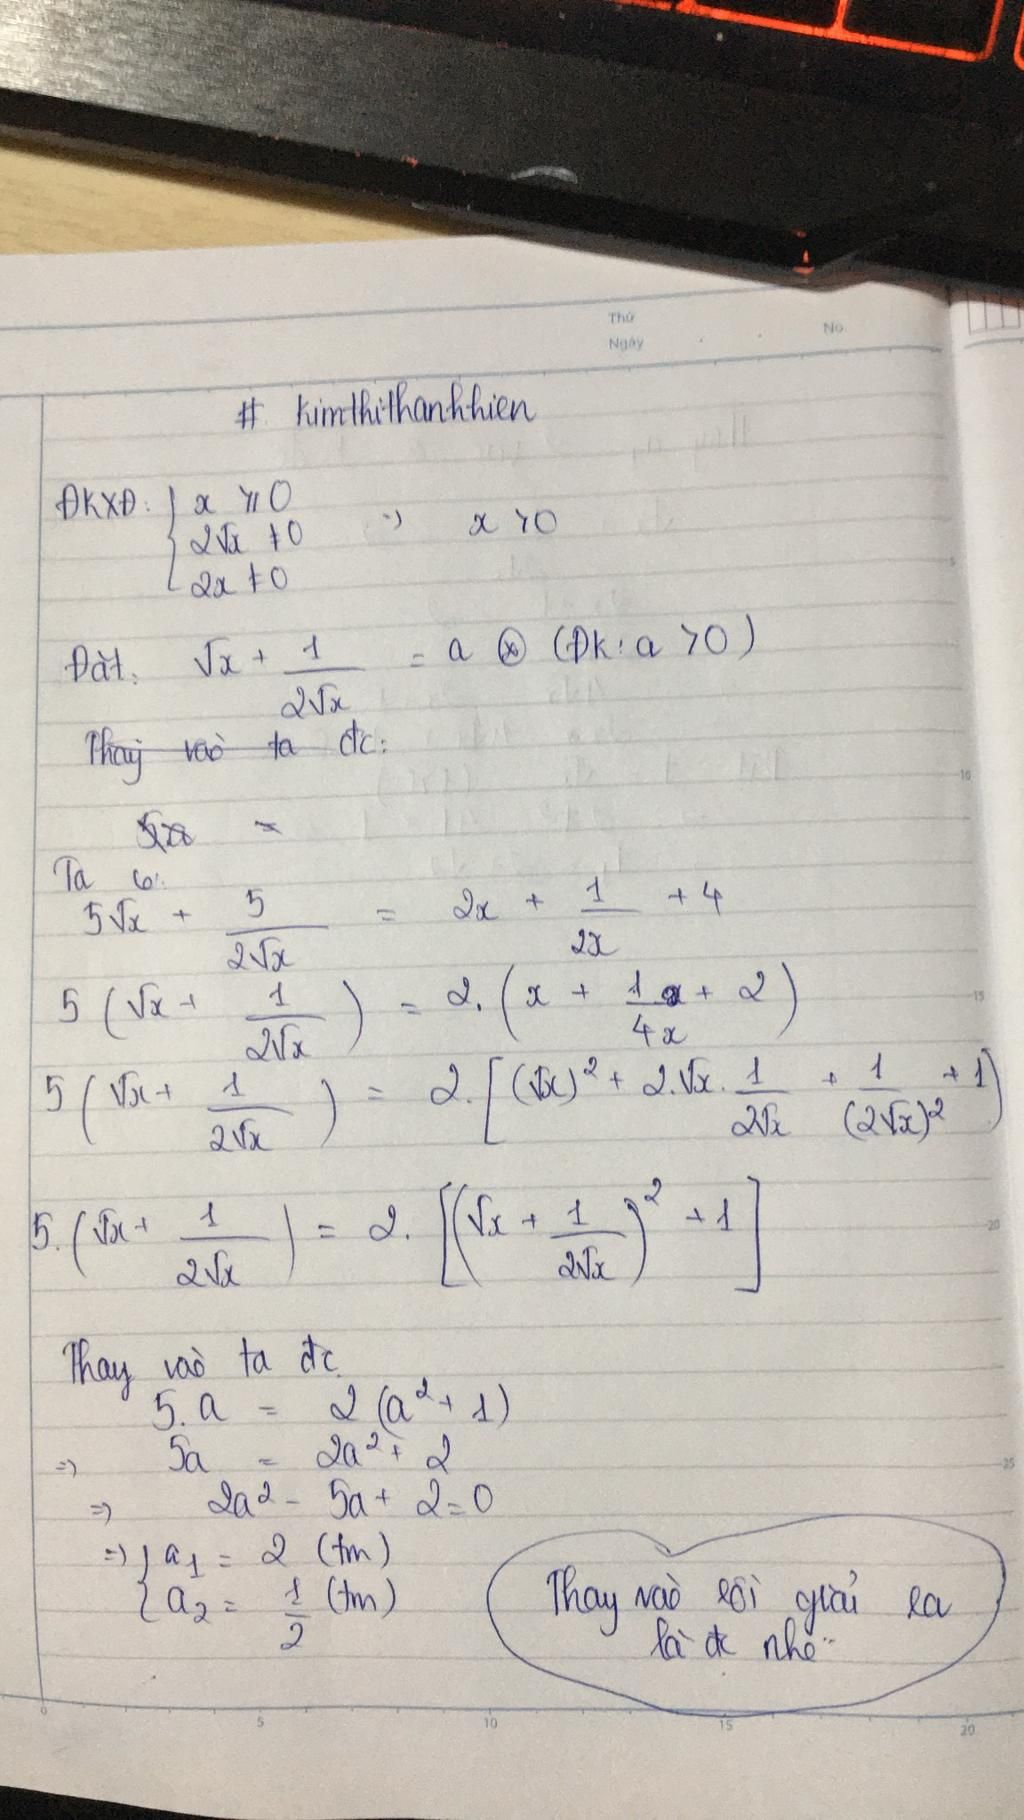 Thứ
No.
Ngày
# kimthithanhhien
ĐKXĐ: { x ≥ 0
2√x ≠ 0 => x > 0
2x ≠ 0
Đặt: √x + 1/(2√x) = a ⊛ (Đk: a > 0)
Thay vào ta đc:
=
Ta có:
5√x + 5/(2√x) = 2x + 1/(2x) + 4
5 (√x + 1/(2√x)) = 2. (x + 1/(4x) + 2)
5 (√x + 1/(2√x)) = 2. [(√x)² + 2.√x. 1/(2√x) + 1/(2√x)² + 1]
5. (√x + 1/(2√x)) = 2. [(√x + 1/(2√x))² + 1]
Thay vào ta đc
5.a = 2 (a² + 1)
=> 5a = 2a² + 2
=> 2a² - 5a + 2 = 0
=> { a₁ = 2 (tm)
a₂ = 1/2 (tm)
Thay vào rồi giải ra
là đc nhé
5
10
15
20
25
0
5
10
15
20